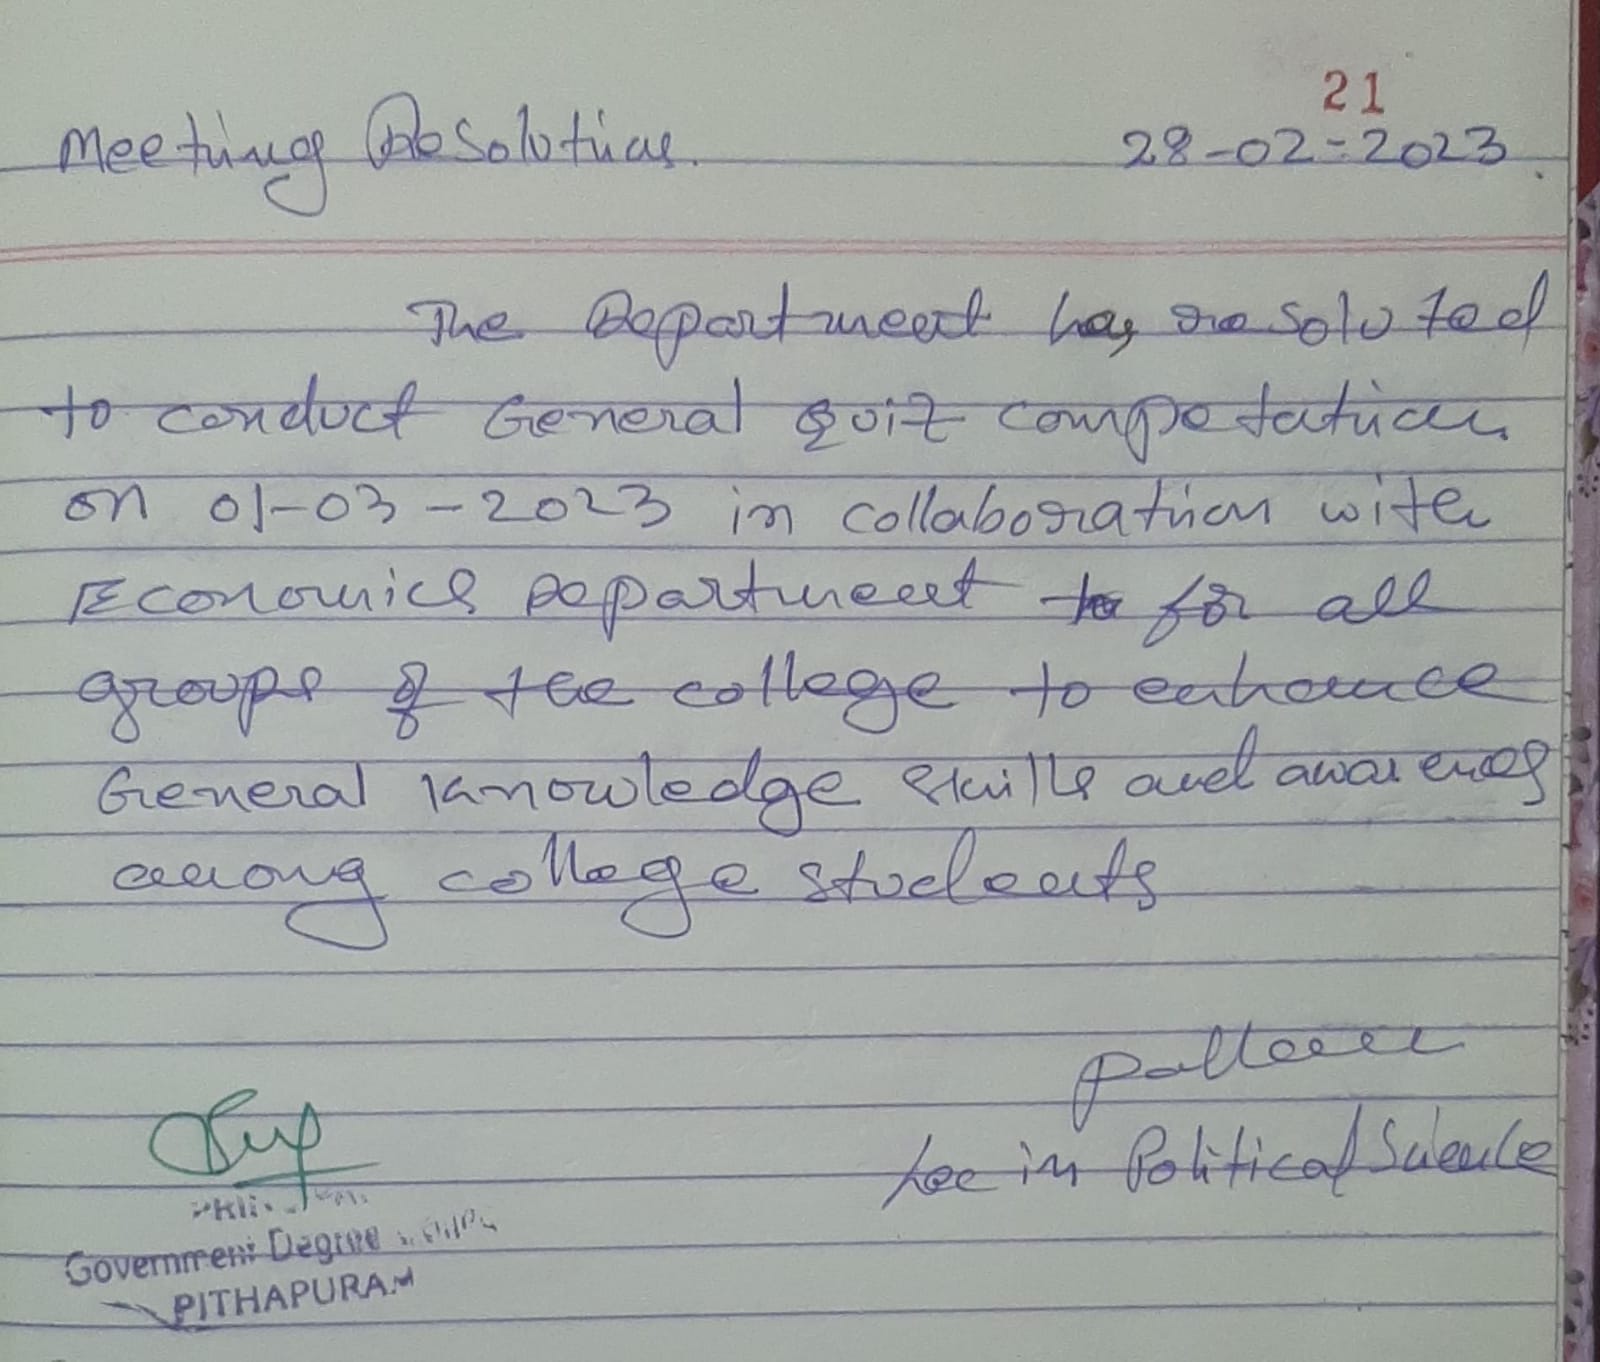 21
Meeting Resolutions.
28-02-2023
The Department has resoluted
to conduct General Quiz Competation
on 01-03-2023 in collaboration with
Economics Department for all
groups of the college to enhance
General Knowledge skills and awareness
among college students
Lec in Political Science
Government Degree
PITHAPURAM